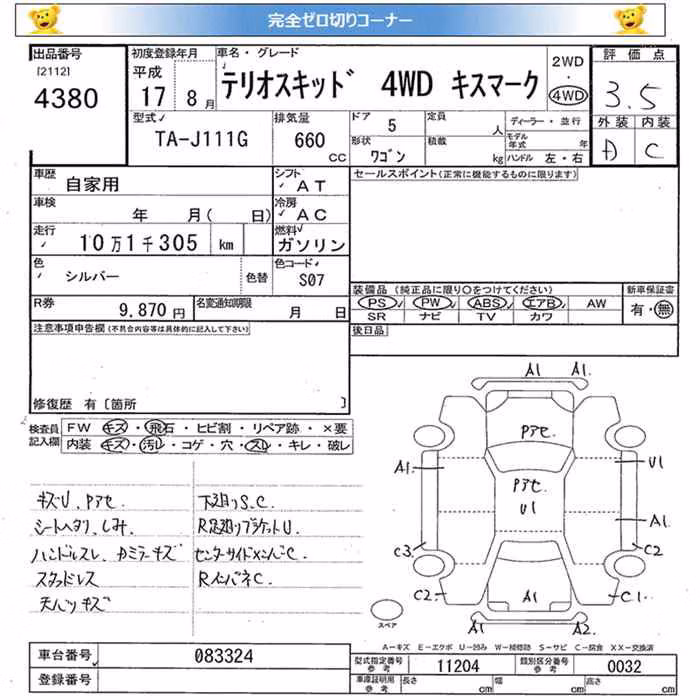 完全ゼロ切りコーナー
出品番号
[2112]
4380
初度登録年月
平成
17 8月
車名・グレード
テリオスキッド 4WD キスマーク
2WD
・
4WD
評価点
3.5
外装 内装
A C
型式
TA-J111G
排気量
660
CC
ドア 5
定員 人
形状 ワゴン
積載 kg
ディーラー・並行
モデル年式 年
ハンドル 左・右
車歴 自家用
シフト AT
セールスポイント(正常に機能するものに限ります)
車検 年 月( 日)
冷房 AC
走行 10万1千305 km
燃料 ガソリン
色 シルバー 色替
色コード S07
R券 9.870円
名変通知期限 月 日
装備品 (純正品に限り○をつけてください)
新車保証書
PS PW ABS エアB AW
有・無
SR ナビ TV カワ
後日品
注意事項申告欄(不具合内容等は具体的に記入して下さい)
修復歴 有〔箇所 〕
検査員
記入欄
FW キズ・飛石・ヒビ割・リペア跡・×要
内装 キズ・汚レ・コゲ・穴・スレ・キレ・破レ
キズU、Pアセ
シートヘタリ、しみ、
ハンドルスレ、カミラーキズ
スタッドレス
天バリキズ
下廻りS.C.
R足廻りブラケットU.
センターサイドメンバーC.
RインパネC.
A1 A1.
Pアセ.
A1.
U1
Pアセ.
U1
A1.
C3
C2
C2.
A1
C1.
A1
A2.
スペア
A-キズ E-エクボ U-凹み W-補修跡 S-サビ C-腐食 XX-交換済
車台番号 083324
型式指定番号
参考
11204
類別区分番号
参考
0032
登録番号
車庫証明用
参考
長さ cm
幅 cm
高さ cm